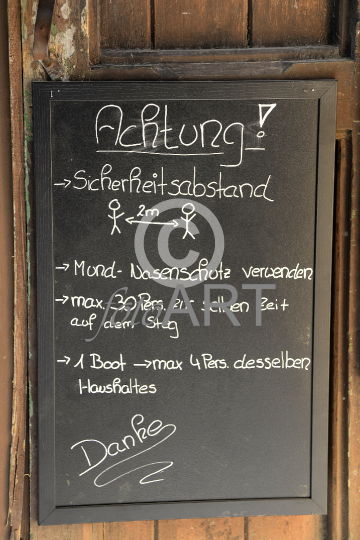 Achtung!
→ Sicherheitsabstand
2m
→ Mund-Nasenschutz verwenden
→ max. 30 Pers. zur selben Zeit
auf dem Steg
→ 1 Boot → max 4 Pers. desselben
Haushaltes
Danke
©
fineART